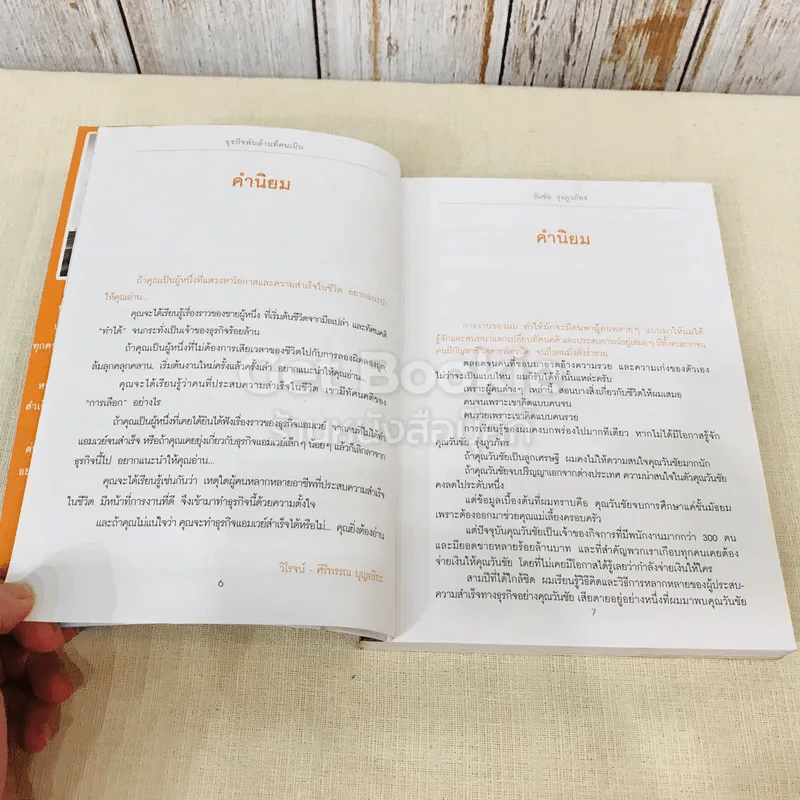 ธุรกิจพันล้านที่คนเมิน
คำนิยม
ถ้าคุณเป็นผู้หนึ่งที่แสวงหาโอกาสและความสำเร็จในชีวิต อยากแนะนำ
ให้คุณอ่าน...
คุณจะได้เรียนรู้เรื่องราวของชายผู้หนึ่ง ที่เริ่มต้นชีวิตจากมือเปล่า และทัศนคติ
"ทำได้" จนกระทั่งเป็นเจ้าของธุรกิจร้อยล้าน
ถ้าคุณเป็นผู้หนึ่งที่ไม่ต้องการเสียเวลาของชีวิตไปกับการลองผิดลองถูก
ล้มลุกคลุกคลาน เริ่มต้นงานใหม่ครั้งแล้วครั้งเล่า อยากแนะนำให้คุณอ่าน...
คุณจะได้เรียนรู้ว่าคนที่ประสบความสำเร็จในชีวิต เขามีทัศนคติของ
"การเลือก" อย่างไร
ถ้าคุณเป็นผู้หนึ่งที่เคยได้ยินได้ฟังเรื่องราวของแอมเวย์ จากคนที่ไม่ได้ทำ
แอมเวย์จนสำเร็จ หรือถ้าคุณเคยยุ่งเกี่ยวกับธุรกิจแอมเวย์เล็กๆ น้อยๆ แล้วก็เลิกลาจาก
ธุรกิจนี้ไป อยากแนะนำให้คุณอ่าน...
คุณจะได้เรียนรู้เช่นกันว่า เหตุใดผู้คนหลากหลายอาชีพที่ประสบความสำเร็จ
ในชีวิต มีหน้าที่การงานที่ดี จึงเข้ามาทำธุรกิจนี้ด้วยความตั้งใจ
และถ้าคุณไม่แน่ใจว่า คุณจะทำธุรกิจแอมเวย์สำเร็จได้หรือไม่... คุณยิ่งต้องอ่าน
วิโรจน์ - ศิริพรรณ บุญอริยะ
6
วันชัย รุ่งภูวภัทร
คำนิยม
การงานของผม ทำให้มักจะมีคนพาผู้คนหลายๆ แบบมาให้ผมได้
รู้จักและสนทนาแลกเปลี่ยนทัศนคติ และประสบการณ์อยู่เสมอๆ มีทั้งคนยากจน
คนมีปัญหา จนถึงคนมั่งคั่งร่ำรวย
ตลอดจนคนที่ชอบมาอวดอ้างความรวย และความเก่งของตัวเอง
ไม่ว่าจะเป็นแบบไหน ผมก็รับได้ทั้งนั้นแหละครับ
เพราะผู้คนต่างๆ เหล่านี้ สอนบางสิ่งเกี่ยวกับชีวิตให้ผมเสมอ
คนจนเพราะเขาคิดแบบคนจน
คนรวยเพราะเขาคิดแบบคนรวย
การเรียนรู้ของผมคงบกพร่องไปมากทีเดียว หากไม่ได้มีโอกาสรู้จัก
คุณวันชัย รุ่งภูวภัทร
ถ้าคุณวันชัยเป็นลูกเศรษฐี ผมคงไม่ให้ความสนใจคุณวันชัยมากนัก
ถ้าคุณวันชัยจบปริญญาเอกจากต่างประเทศ ความน่าสนใจในตัวคุณวันชัย
คงลดไประดับหนึ่ง
แต่ข้อมูลเบื้องต้นที่ผมทราบคือ คุณวันชัยจบการศึกษาแค่ชั้นมัธยม
เพราะต้องออกมาช่วยคุณแม่เลี้ยงครอบครัว
แต่ปัจจุบันคุณวันชัยเป็นเจ้าของกิจการที่มีพนักงานมากกว่า 300 คน
และมียอดขายหลายร้อยล้านบาท และที่สำคัญพวกเราเกือบทุกคนเคยต้อง
จ่ายเงินให้คุณวันชัย โดยที่ไม่เคยมีโอกาสได้รู้เลยว่ากำลังจ่ายเงินให้ใคร
สามปีที่ได้ใกล้ชิด ผมเรียนรู้วิธีคิดและวิธีการหลากหลายของผู้ประสบ-
ความสำเร็จทางธุรกิจอย่างคุณวันชัย เสียดายอยู่อย่างหนึ่งที่ผมมาพบคุณวันชัย
7